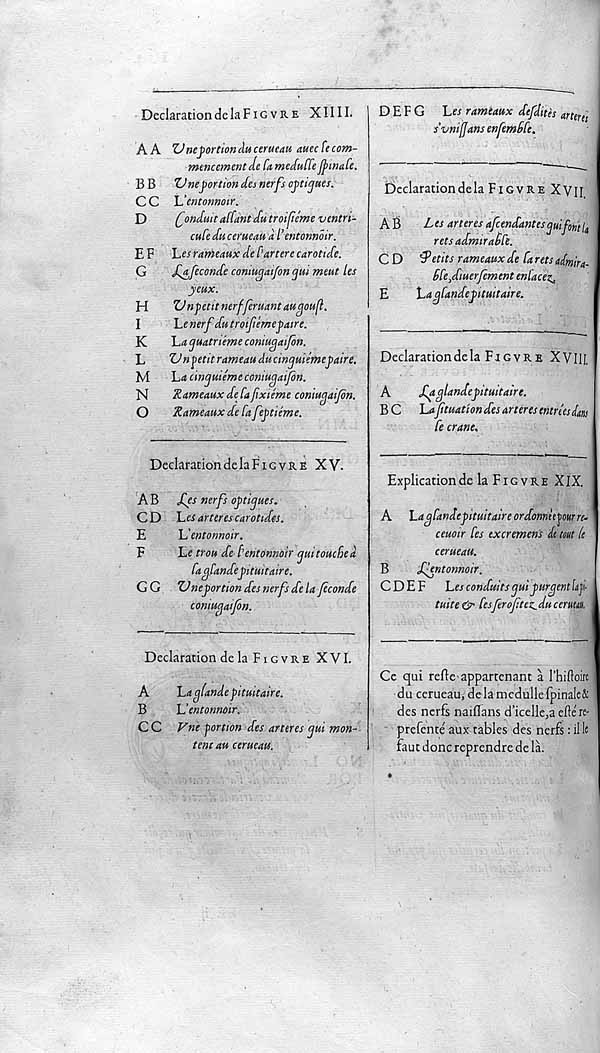 Declaration de la FIGVRE XIIII.
A A Vne portion du cerueau auec le com-
mencement de la medulle ſpinale.
B B Vne portion des nerfs optiques.
C C L'entonnoir.
D Conduit allant du troiſiéme ventri-
cule du cerueau à l'entonnoir.
E F Les rameaux de l'artere carotide.
G La ſeconde coniugaiſon qui meut les
yeux.
H Vn petit nerf ſeruant au gouſt.
I Le nerf du troiſiéme paire.
K La quatriéme coniugaiſon.
L Vn petit rameau du cinquiéme paire.
M La cinquiéme coniugaiſon.
N Rameaux de la ſixiéme coniugaiſon.
O Rameaux de la ſeptiéme.
Declaration de la FIGVRE XV.
A B Les nerfs optiques.
C D Les arteres carotides.
E L'entonnoir.
F Le trou de l'entonnoir qui touche à
la glande pituitaire.
G G Vne portion des nerfs de la ſeconde
coniugaiſon.
Declaration de la FIGVRE XVI.
A La glande pituitaire.
B L'entonnoir.
C C Vne portion des arteres qui mon-
tent au cerueau.
D E F G Les rameaux deſdites arteres
s'vniſſans enſemble.
Declaration de la FIGVRE XVII.
A B Les arteres aſcendantes qui font la
rets admirable.
C D Petits rameaux de la rets admira-
ble, diuerſement enlacez.
E La glande pituitaire.
Declaration de la FIGVRE XVIII.
A La glande pituitaire.
B C La ſituation des arteres entrées dans
le crane.
Explication de la FIGVRE XIX.
A La glande pituitaire ordonnée pour re-
ceuoir les excremens de tout le
cerueau.
B L'entonnoir.
C D E F Les conduits qui purgent la pi-
tuite & les ſeroſitez du cerueau.
Ce qui reſte appartenant à l'hiſtoire
du cerueau, de la medulle ſpinale &
des nerfs naiſſans d'icelle, a eſté re-
preſenté aux tables des nerfs : il le
faut donc reprendre de là.